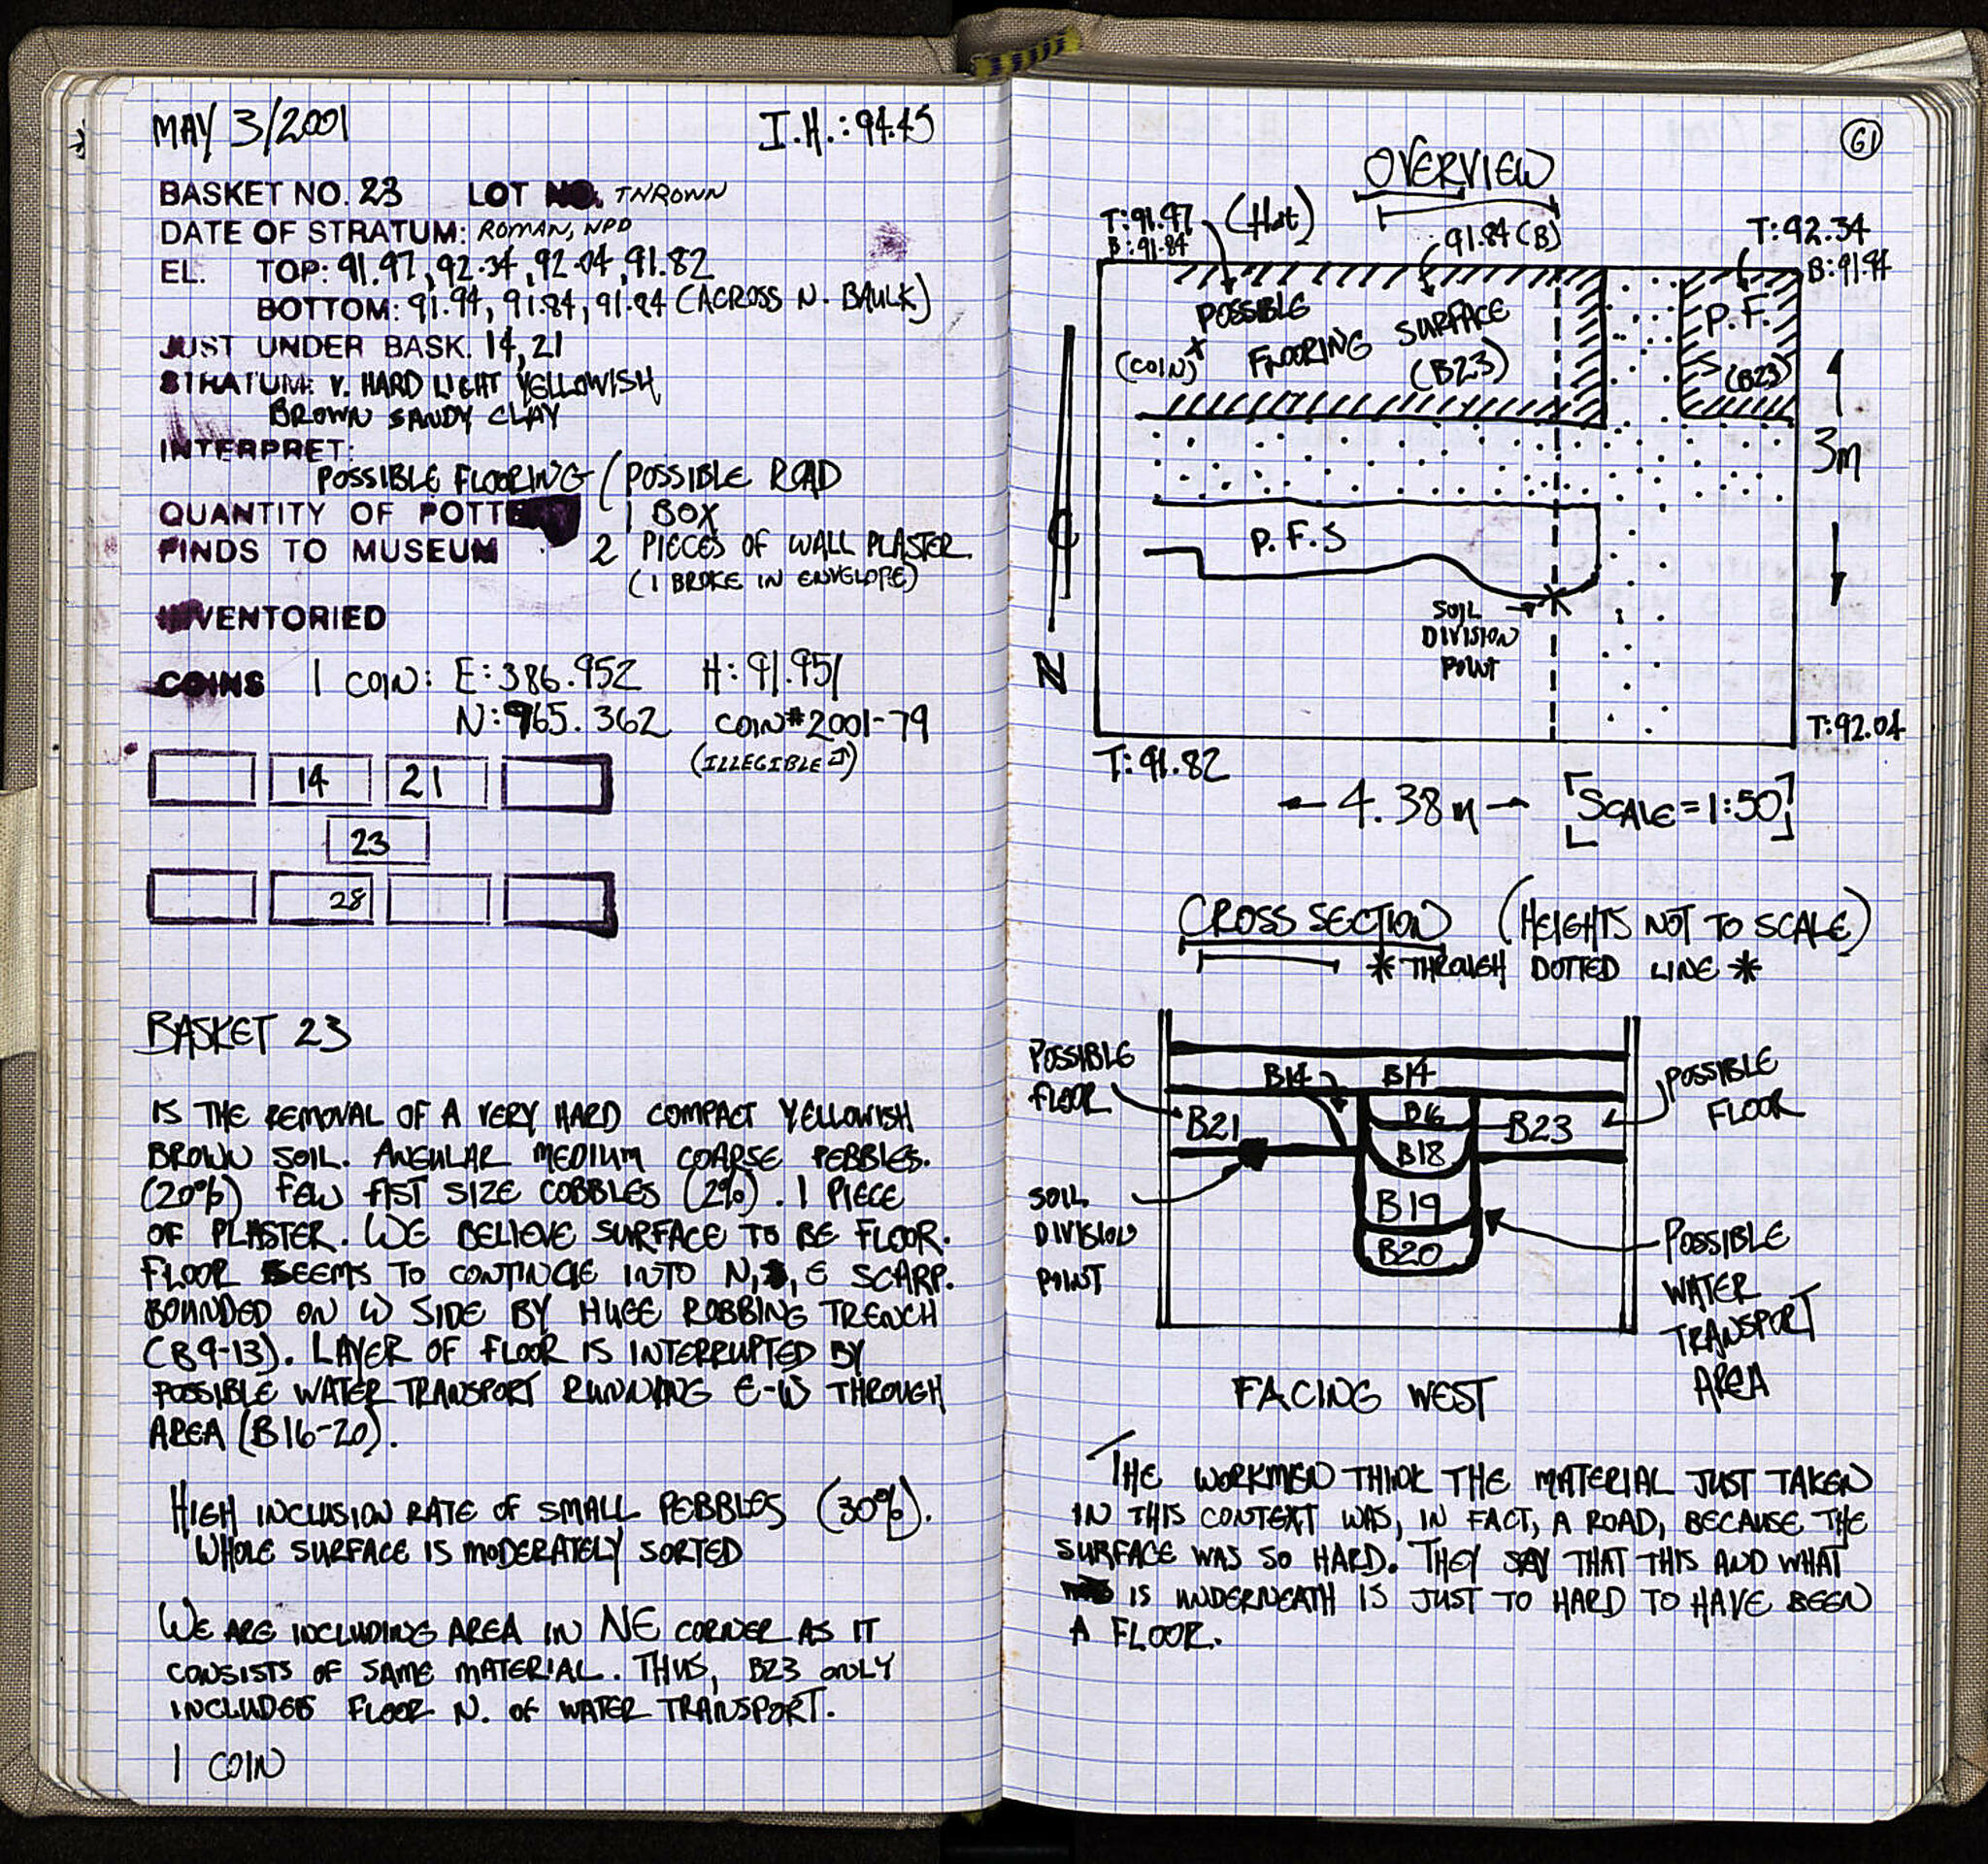 MAY 3/2001 I.H.: 94.45
BASKET NO. 23 LOT NO. THROWN
DATE OF STRATUM: ROMAN, NPD
EL. TOP: 91.97, 92.34, 92.04, 91.82
BOTTOM: 91.94, 91.84, 91.94 (ACROSS N. BAULK)
JUST UNDER BASK. 14, 21
STRATUM: V. HARD LIGHT YELLOWISH
BROWN SANDY CLAY
INTERPRET:
POSSIBLE FLOORING / POSSIBLE ROAD
QUANTITY OF POTTE 1 BOX
FINDS TO MUSEUM 2 PIECES OF WALL PLASTER
(1 BROKE IN ENVELOPE)
INVENTORIED
COINS 1 COIN: E: 386.952 H: 91.951
N: 965.362 COIN# 2001-79
(ILLEGIBLE)
14 21
23
28
BASKET 23
IS THE REMOVAL OF A VERY HARD COMPACT YELLOWISH
BROWN SOIL. ANGULAR MEDIUM COARSE PEBBLES.
(20%) FEW FIST SIZE COBBLES (2%). 1 PIECE
OF PLASTER. WE BELIEVE SURFACE TO BE FLOOR.
FLOOR SEEMS TO CONTINUE INTO N, E SCARP.
BOUNDED ON W SIDE BY HUGE ROBBING TRENCH
(B9-13). LAYER OF FLOOR IS INTERRUPTED BY
POSSIBLE WATER TRANSPORT RUNNING E-W THROUGH
AREA (B16-20).
HIGH INCLUSION RATE OF SMALL PEBBLES (30%).
WHOLE SURFACE IS MODERATELY SORTED
WE ARE INCLUDING AREA IN NE CORNER AS IT
CONSISTS OF SAME MATERIAL. THUS, B23 ONLY
INCLUDES FLOOR N. OF WATER TRANSPORT.
1 COIN
61
OVERVIEW
T: 91.97 (Hat)
B: 91.84
91.84 (B)
T: 92.34
B: 91.94
POSSIBLE
FLOORING SURFACE
(COIN) X
(B23)
P.F.
(B23)
3m
P.F.S
SOIL
DIVISION
POINT
N
T: 92.04
T: 91.82
4.38m [SCALE = 1:50]
CROSS SECTION (HEIGHTS NOT TO SCALE)
* THROUGH DOTTED LINE *
POSSIBLE
FLOOR
B14 B14
POSSIBLE
FLOOR
B21 B16 B23
B18
B19
B20
SOIL
DIVISION
POINT
POSSIBLE
WATER
TRANSPORT
AREA
FACING WEST
THE WORKMEN THINK THE MATERIAL JUST TAKEN
IN THIS CONTEXT WAS, IN FACT, A ROAD, BECAUSE THE
SURFACE WAS SO HARD. THEY SAY THAT THIS AND WHAT
IS UNDERNEATH IS JUST TO HARD TO HAVE BEEN
A FLOOR.